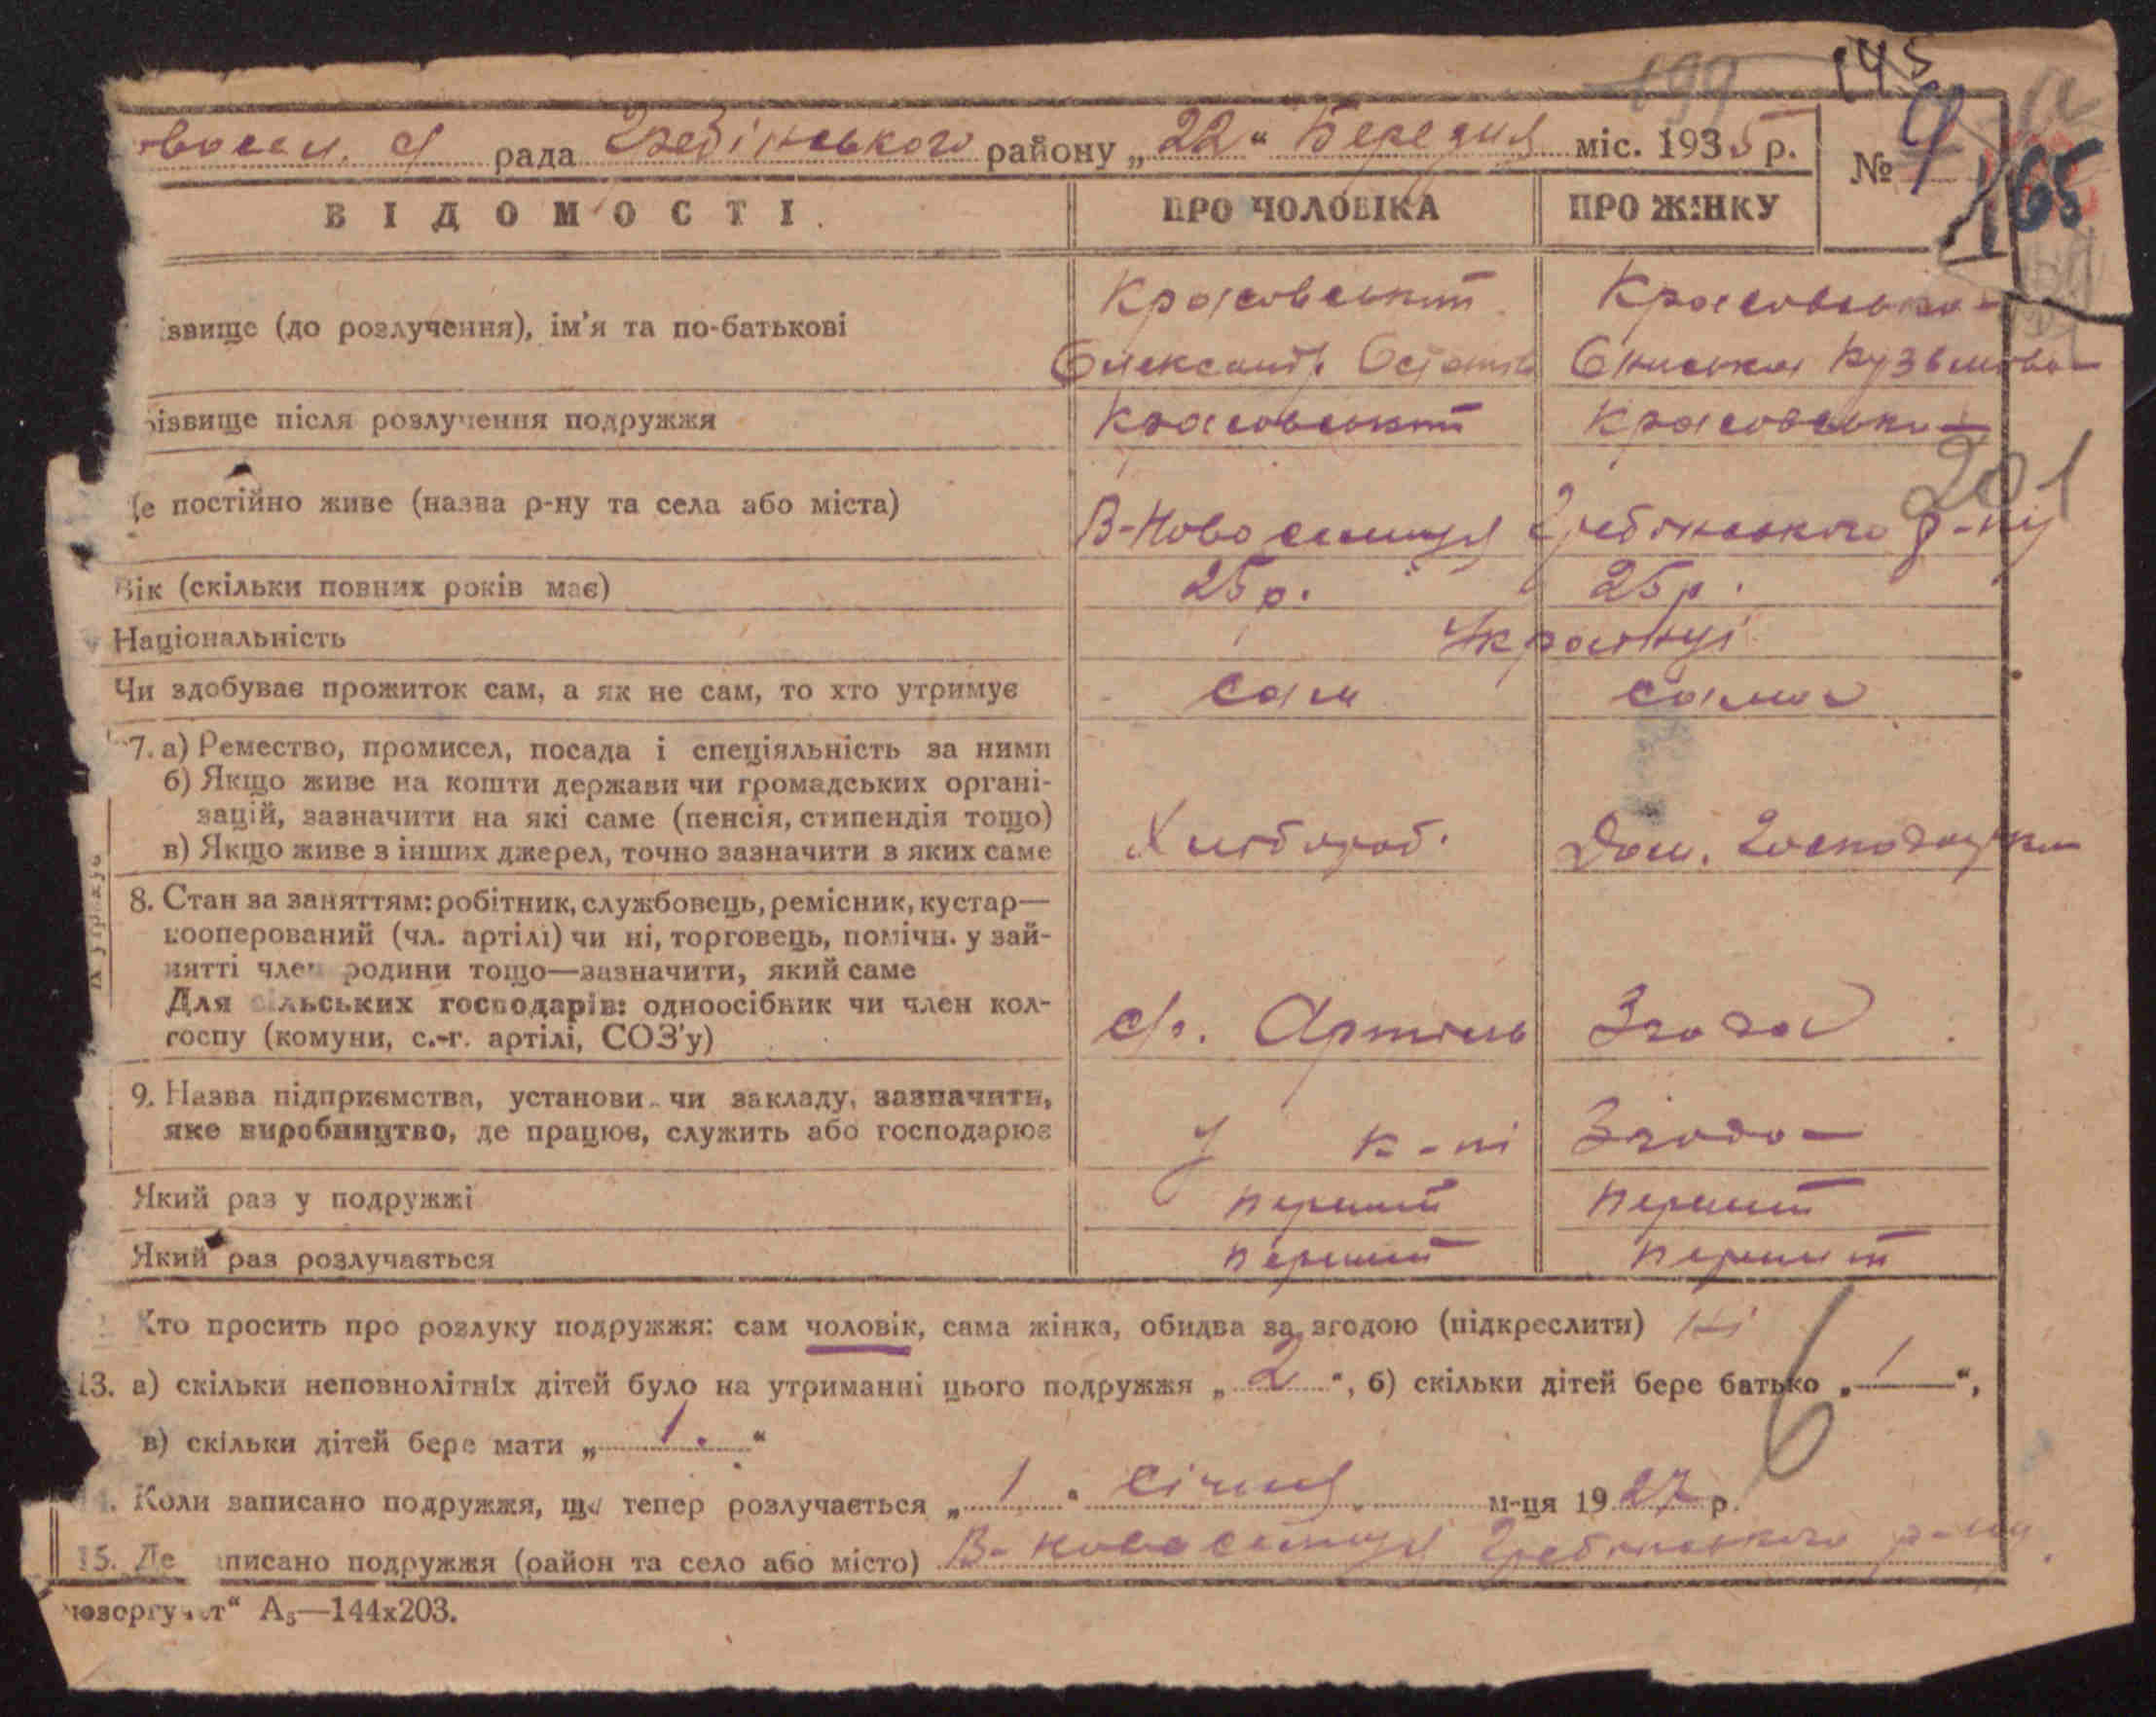 199 145
рада Гребінківського району „22“ Березня міс. 1935 р. № 9
165
ВІДОМОСТІ. ПРО ЧОЛОВІКА ПРО ЖІНКУ
звище (до розлучення), ім'я та по-батькові Красовський Красовська
Олександр Кузьмова
різвище після розлучення подружжя Красовський Красовська
201
е постійно живе (назва р-ну та села або міста) В-Новоселиця Гребінківського р-ну
Вік (скільки повних років має) 25 р. 25 р.
Національність Українці
Чи здобуває прожиток сам, а як не сам, то хто утримує сам сама
7. а) Ремество, промисел, посада і спеціяльність за ними
б) Якщо живе на кошти держави чи громадських органі-
зацій, зазначити на які саме (пенсія, стипендія тощо)
в) Якщо живе з інших джерел, точно зазначити з яких саме Хлібороб. Дом. Господарка
8. Стан за заняттям: робітник, службовець, ремісник, кустар—
кооперований (чл. артілі) чи ні, торговець, помічн. у зай-
нятті член родини тощо—зазначити, який саме
Для сільських господарів: одноосібник чи член кол-
госпу (комуни, с.-г. артілі, СОЗ'у) с/г. Артіль Згода
9. Назва підприємства, установи чи закладу, зазначити,
яке виробництво, де працює, служить або господарює У к-пі Згода
Який раз у подружжі перший перший
Який раз розлучається перший перший
Хто просить про розлуку подружжя: сам чоловік, сама жінка, обидва за згодою (підкреслити)
6
13. а) скільки неповнолітніх дітей було на утриманні цього подружжя „2“, б) скільки дітей бере батько „1“,
в) скільки дітей бере мати „1.“
Коли записано подружжя, що тепер розлучається „1“ Січня м-ця 1927 р.
15. Де записано подружжя (район та село або місто) В-Новоселиця Гребінківського р-ну.
А₅—144х203.